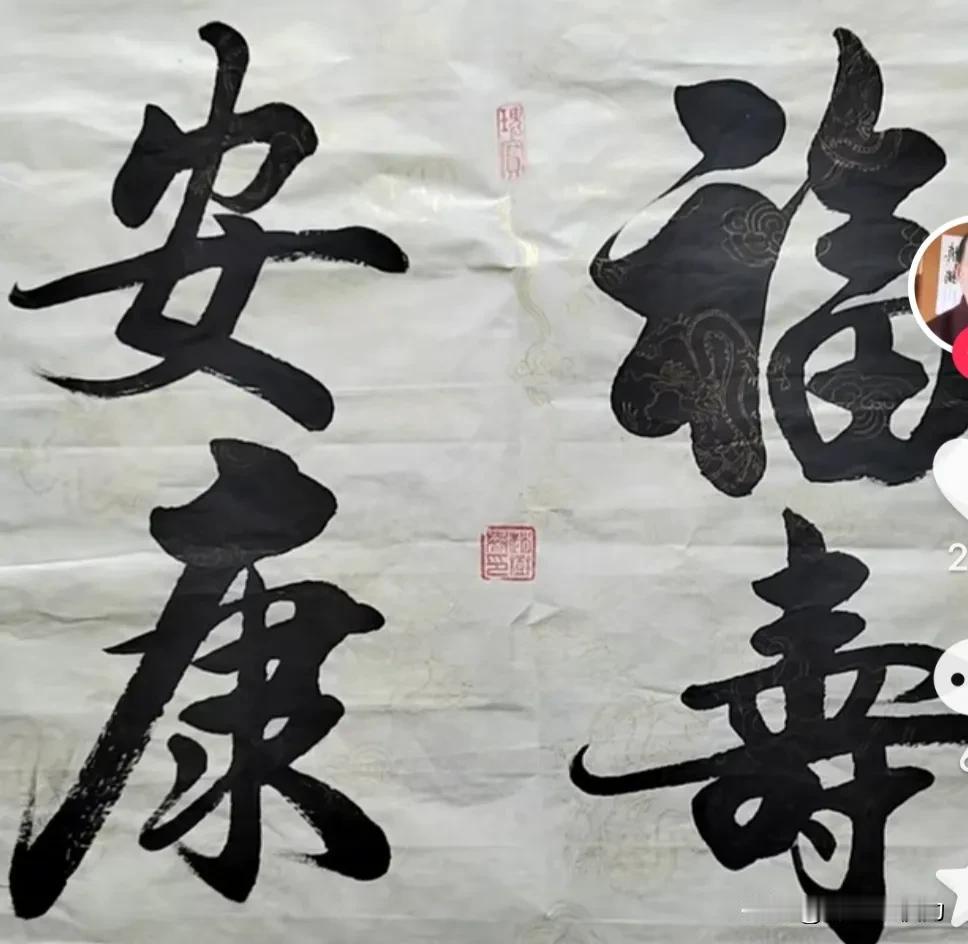 福壽
安康
2